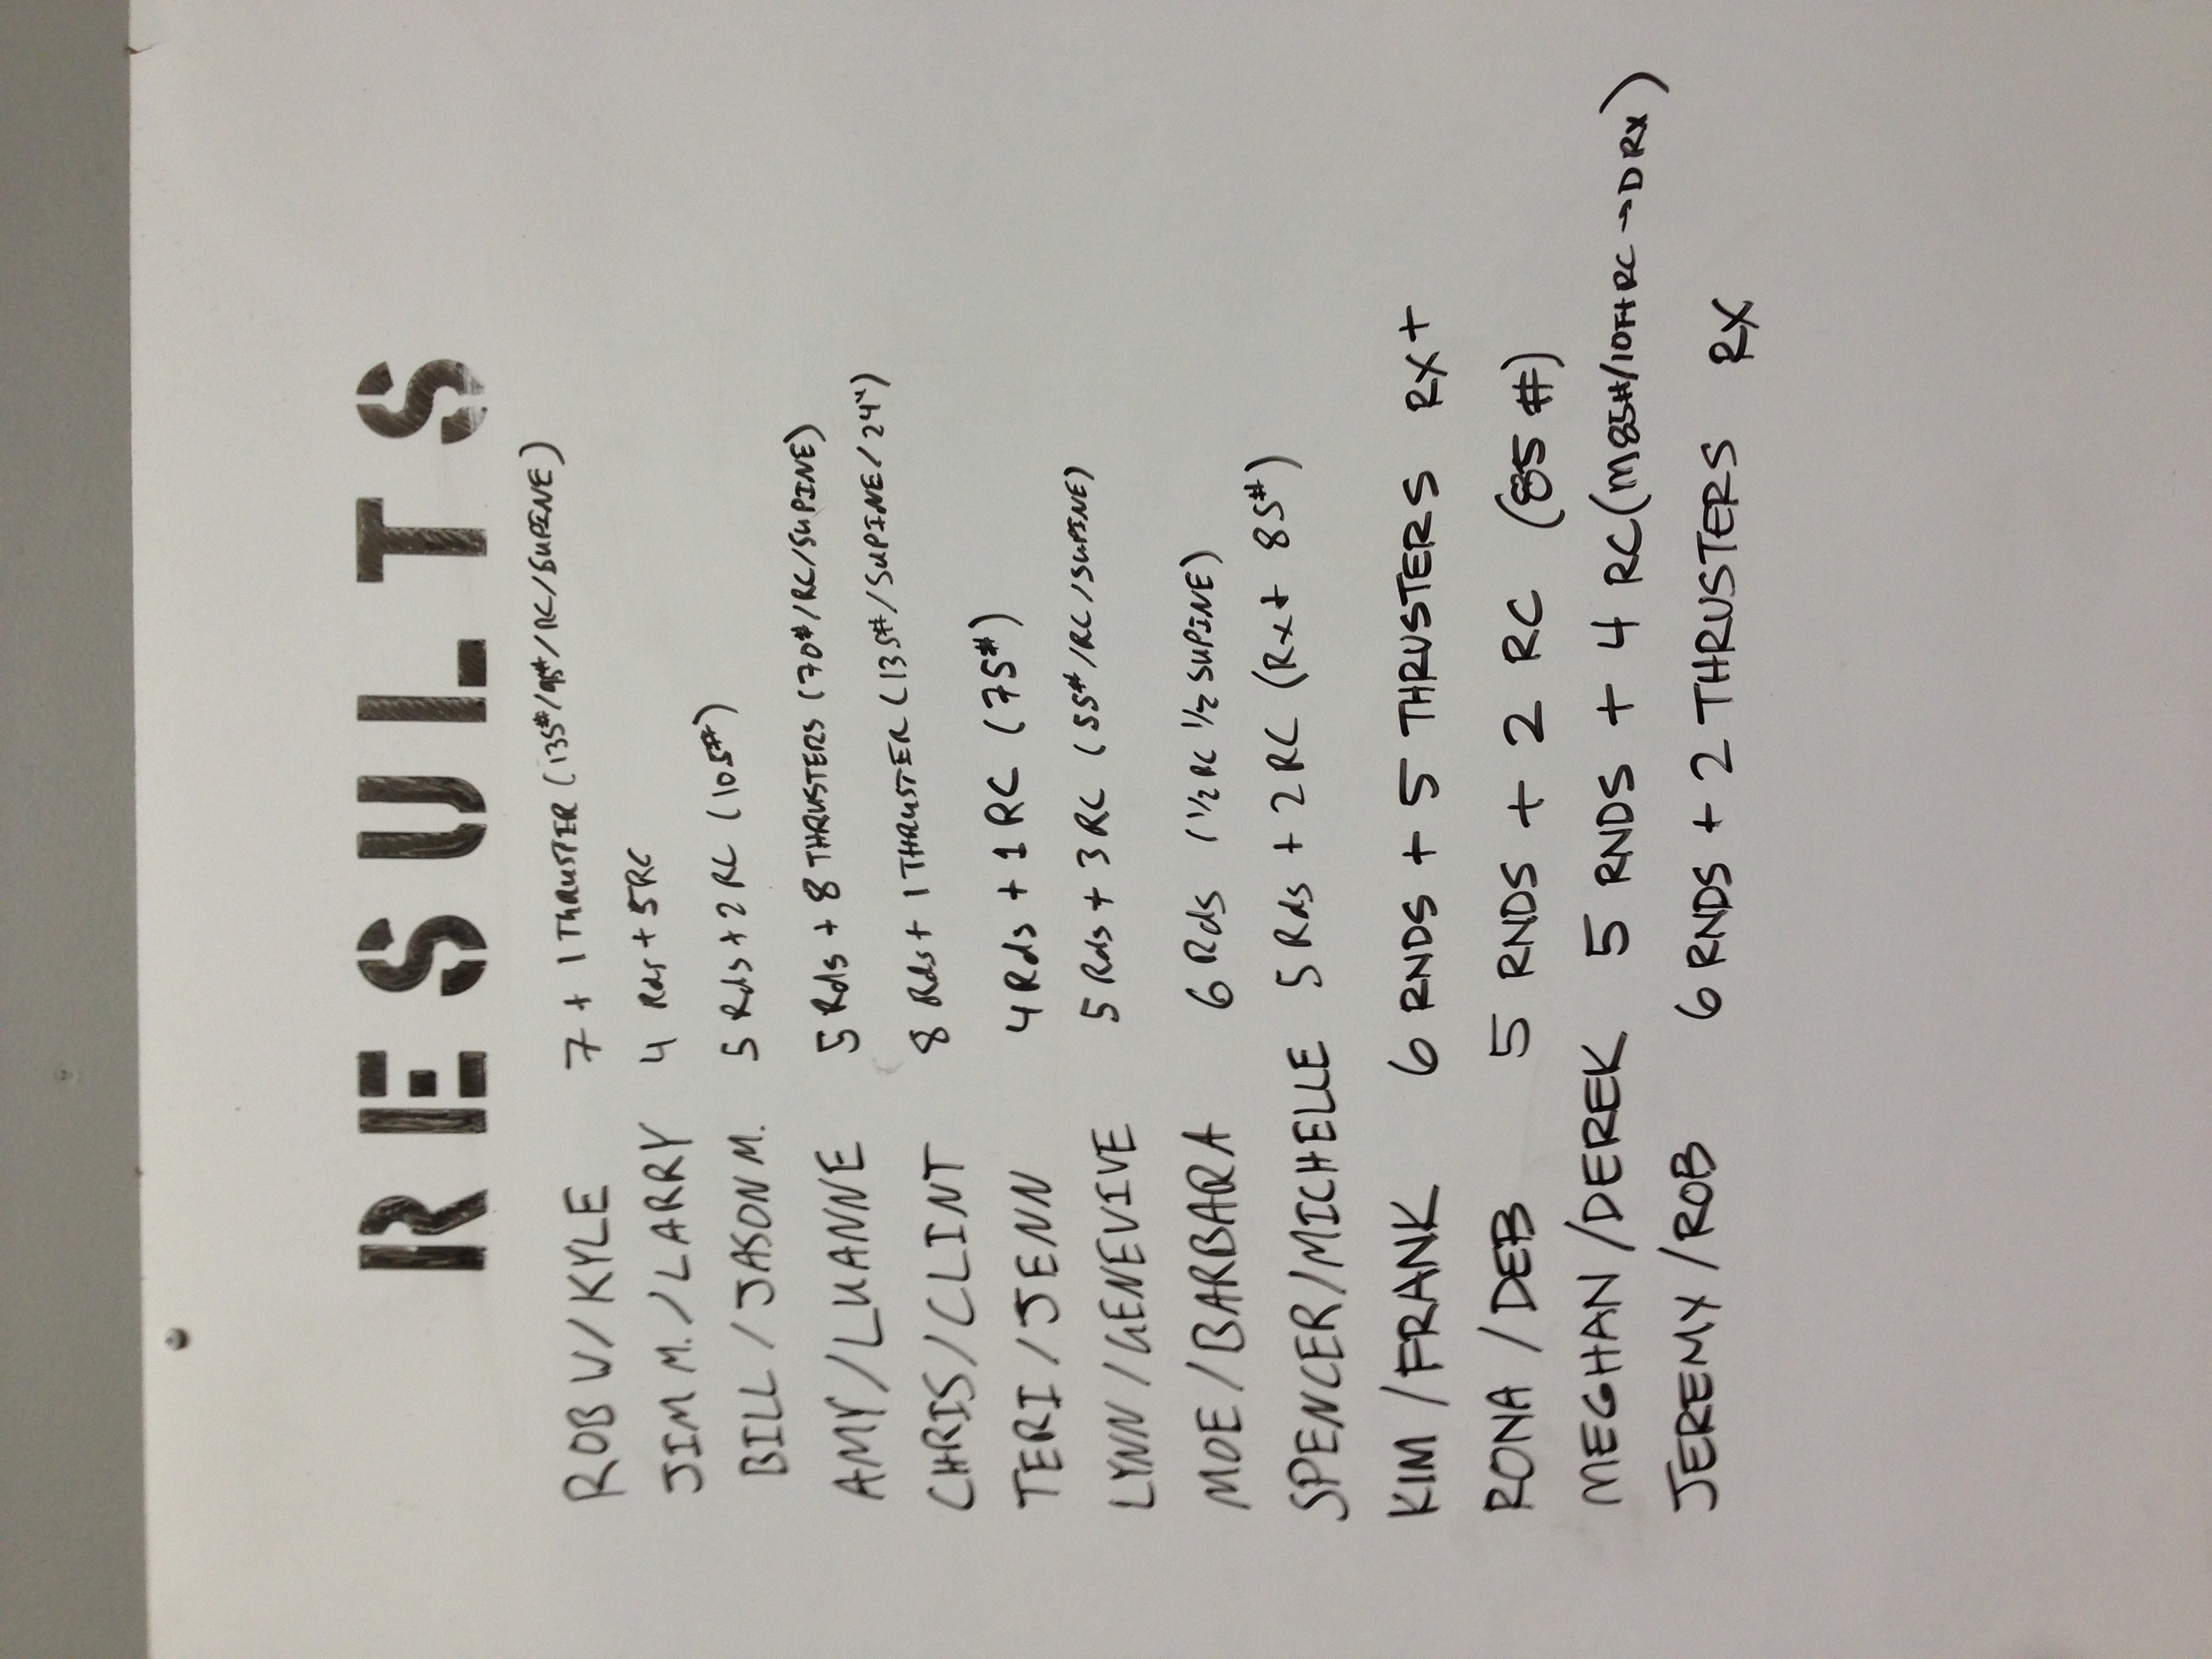 RESULTS
ROB W/KYLE 7 + 1 THRUSTER (135#/95#/RC/SUPINE)
JIM M./LARRY 4 Rds + 5RC
BILL/JASON M. 5 Rds + 2 RC (105#)
AMY/LUANNE 5 Rds + 8 THRUSTERS (70#/RC/SUPINE)
CHRIS/CLINT 8 Rds + 1 THRUSTER (135#/SUPINE/24")
TERI/JENN 4 Rds + 1 RC (75#)
LYNN/GENEVIVE 5 Rds + 3 RC (55#/RC/SUPINE)
MOE/BARBARA 6 Rds (1/2 RC 1/2 SUPINE)
SPENCER/MICHELLE 5 Rds + 2 RC (Rx+ 85#)
KIM/FRANK 6 RNDS + 5 THRUSTERS RX+
RONA/DEB 5 RNDS + 2 RC (85#)
MEGHAN/DEREK 5 RNDS + 4 RC (M85#/10FT RC → D RX)
JEREMY/ROB 6 RNDS + 2 THRUSTERS RX